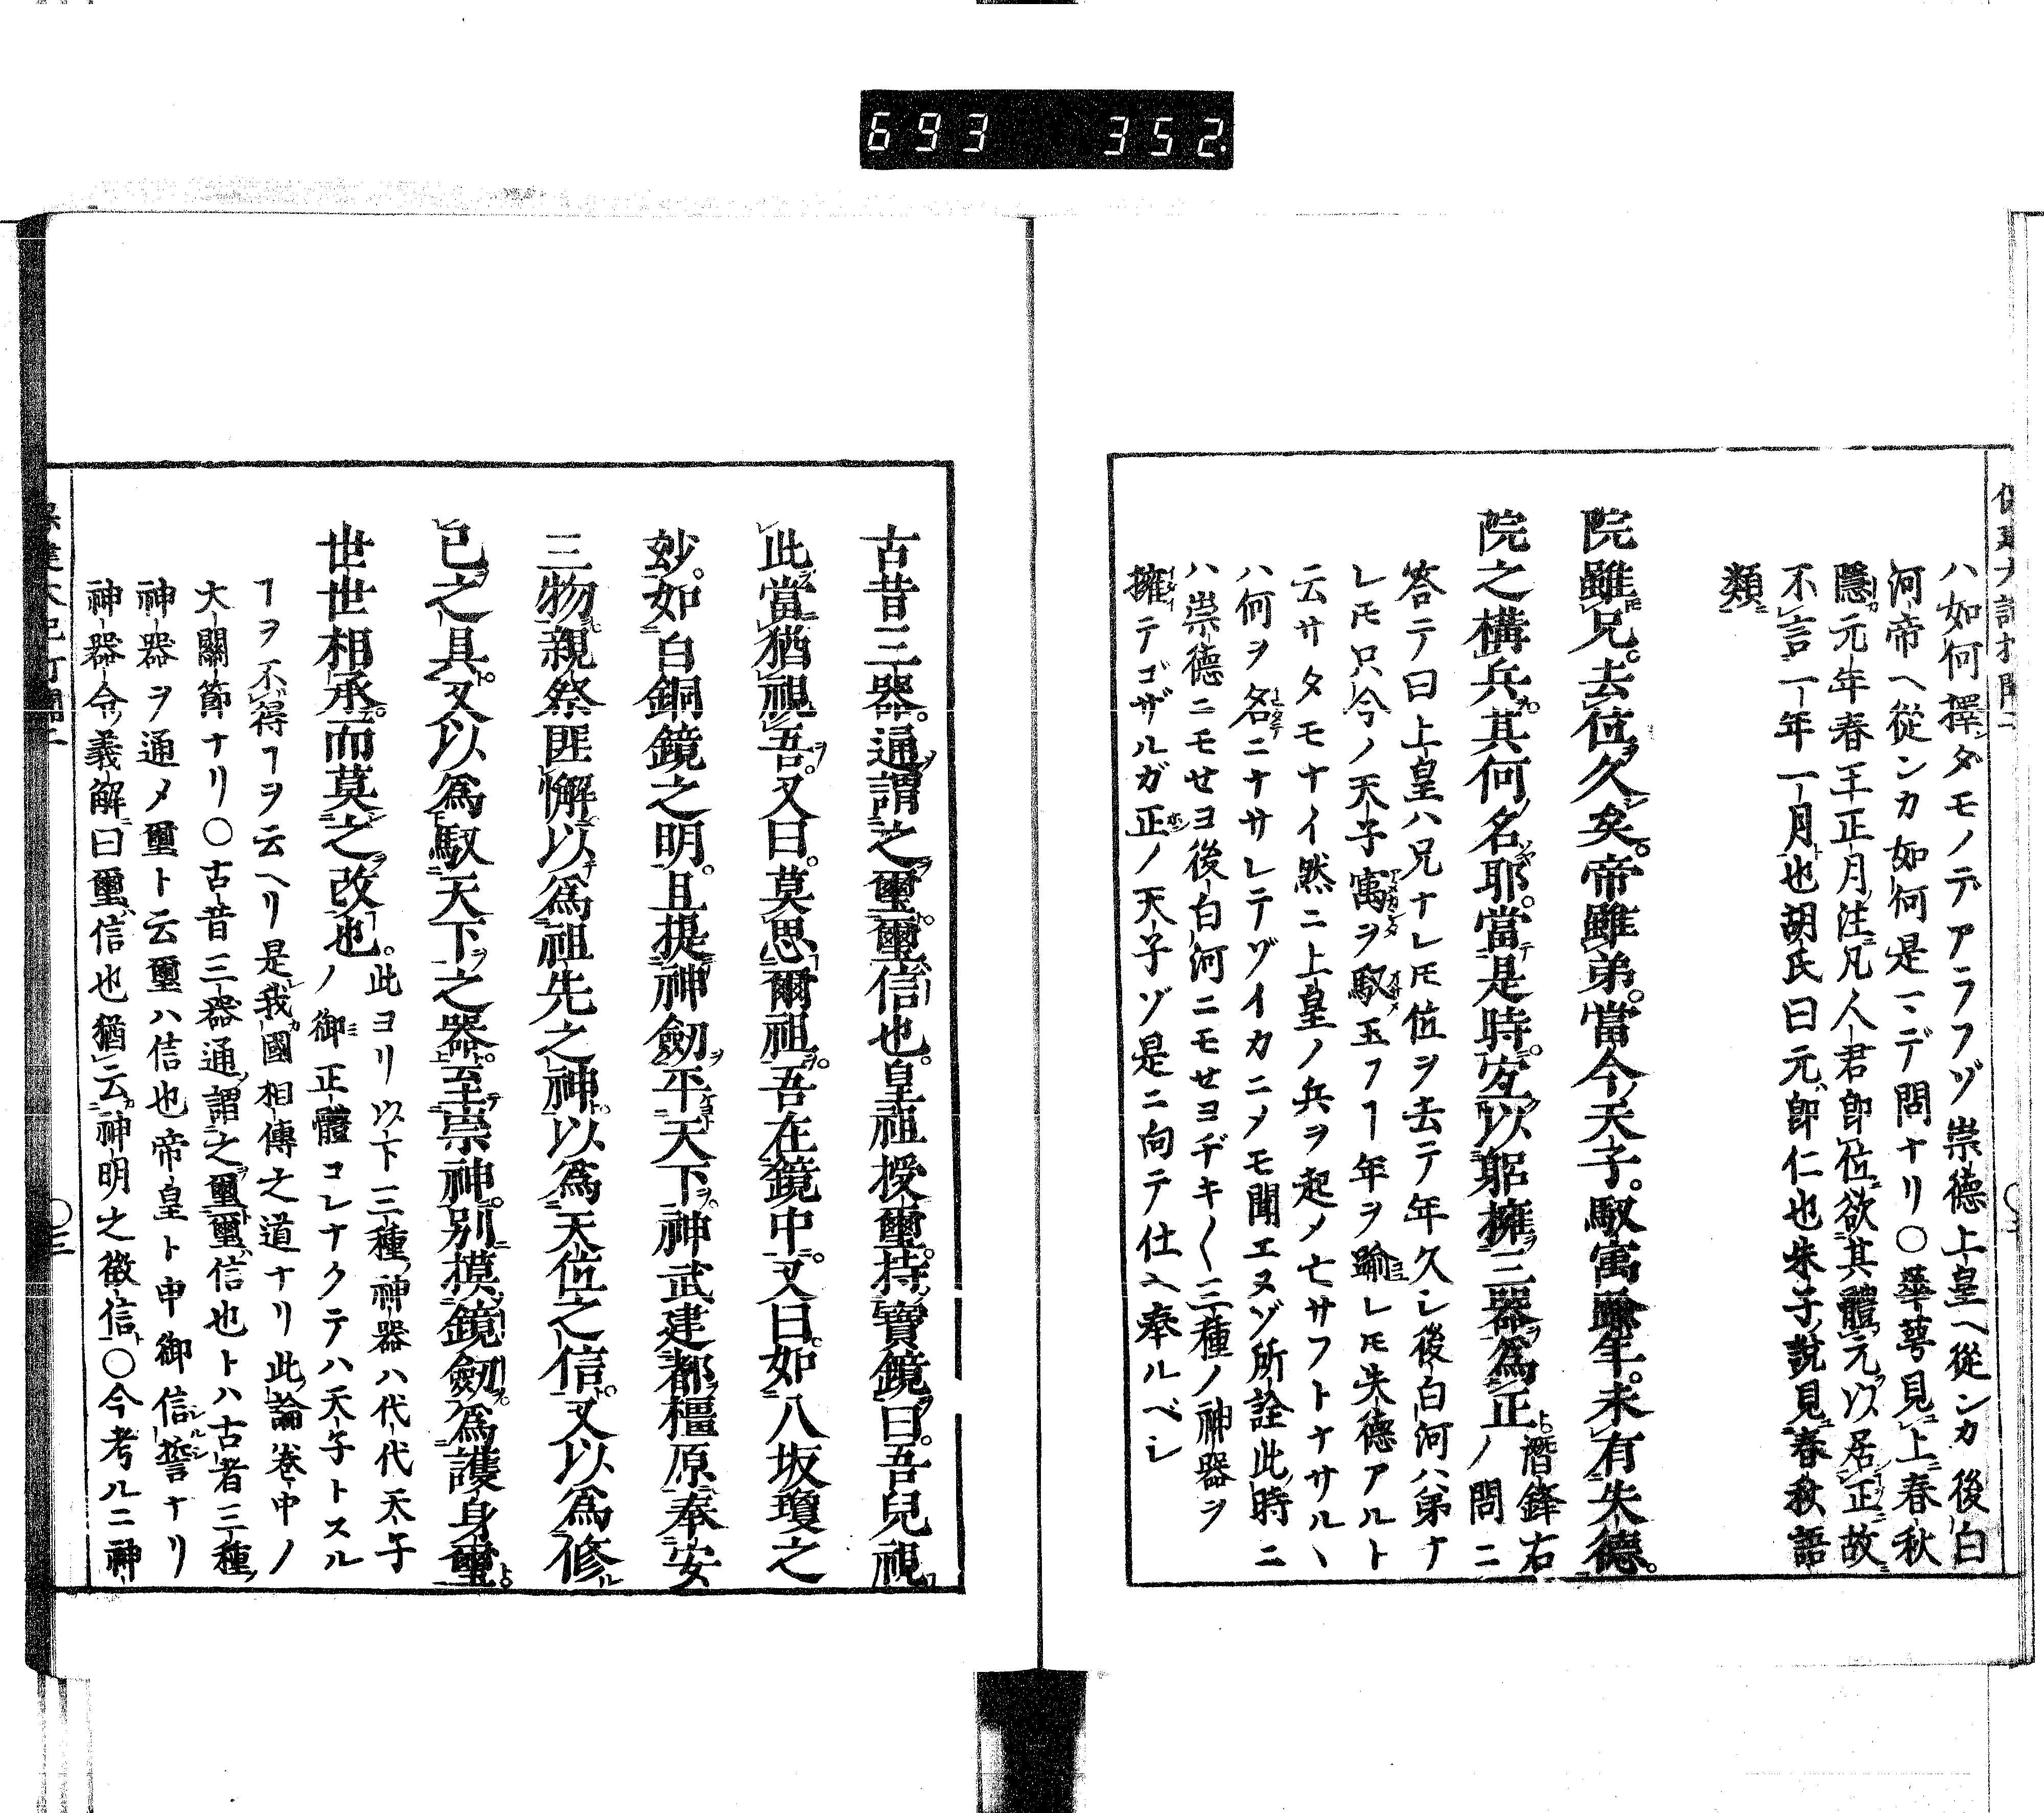 693 352
ハ如何擇タモノデアラフゾ崇德上皇ヘ從ンカ後白
河帝ヘ從ンカ如何是マデ問ナリ〇華萼見上春秋
隱元年春王正月注凡人君即位欲其體元以居正故
不言一年一月也胡氏曰元即仁也朱子說見春秋語
類
院雖兄。去位久矣。帝雖弟。當今天子。馭寓踰年。未有失德。
院之構兵其何名耶。當是時。宜以躬擁三器爲正
潛鋒右
ノ問ニ
答テ曰上皇ハ兄ナレモ位ヲ去テ年久シ後白河ハ弟ナ
レモ只今ノ天子寓ヲ馭玉フヿ年ヲ踰レモ失德アルト
云サタモナイ然ニ上皇ノ兵ヲ起メ亡サフトナサルヽ
ハ何ヲ名ニナサレテゾイカニメモ聞エヌゾ所詮此時ニ
ハ崇德ニモせヨ後白河ニモせヨヂキ〱三種ノ神器ヲ
擁テゴザルガ正ノ天子ゾ是ニ向テ仕ヘ奉ルベシ
古昔三器。通謂之璽。璽信也。皇祖授璽。持寶鏡曰。吾兒視
此當猶視吾。又曰。莫思爾祖。吾在鏡中。又曰。如八坂瓊之
妙。如白銅鏡之明。且提神劒平天下。神武建都橿原奉安
三物。親祭匪懈。以爲祖先之神。以爲天位之信。又以爲修
己之具。又以爲馭天下之器。至崇神。別摸鏡劒。爲護身璽。
世世相承。而莫之改也。
此ヨリ以下三種神器ハ代代天子
ノ御正體コレナクテハ天子トスル
ヿヲ不得ヿヲ云ヘリ是我國相傳之道ナリ此論卷中ノ
大關節ナリ〇古昔三器通謂之璽璽信也トハ古者三種
神器ヲ通メ璽ト云璽ハ信也帝皇ト申御信誓ナリ
神器令義解曰璽信也猶云神明之徵信〇今考ルニ神